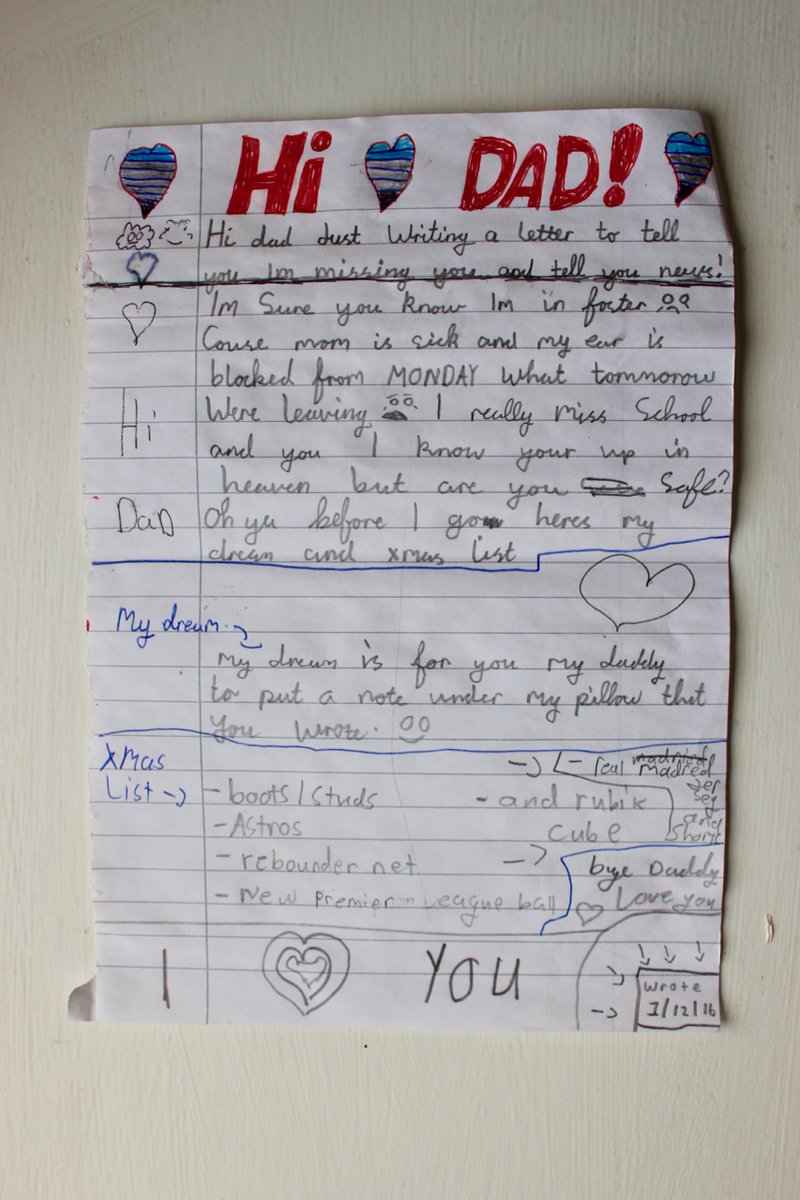 Hi DAD!
Hi dad Just Writing a letter to tell
you Im missing you and tell you news!
Im Sure you know Im in foster
Cause mom is sick and my ear is
blocked from MONDAY What tommorow
Hi
Were leaving I really miss School
and you I know your up in
heaven but are you Safe?
DaD
Oh ya before I go heres my
dream and xmas list
My dream
my dream is for you my daddy
to put a note under my pillow that
you wrote.
XMas
List
- real madried
madred
jer
sey
and
Shorts
- boots/studs
- Astros
- rebounder net
- New Premier-League ball
- and rubik
cube
bye Daddy
Love you
I YOU
Wrote
1/12/16